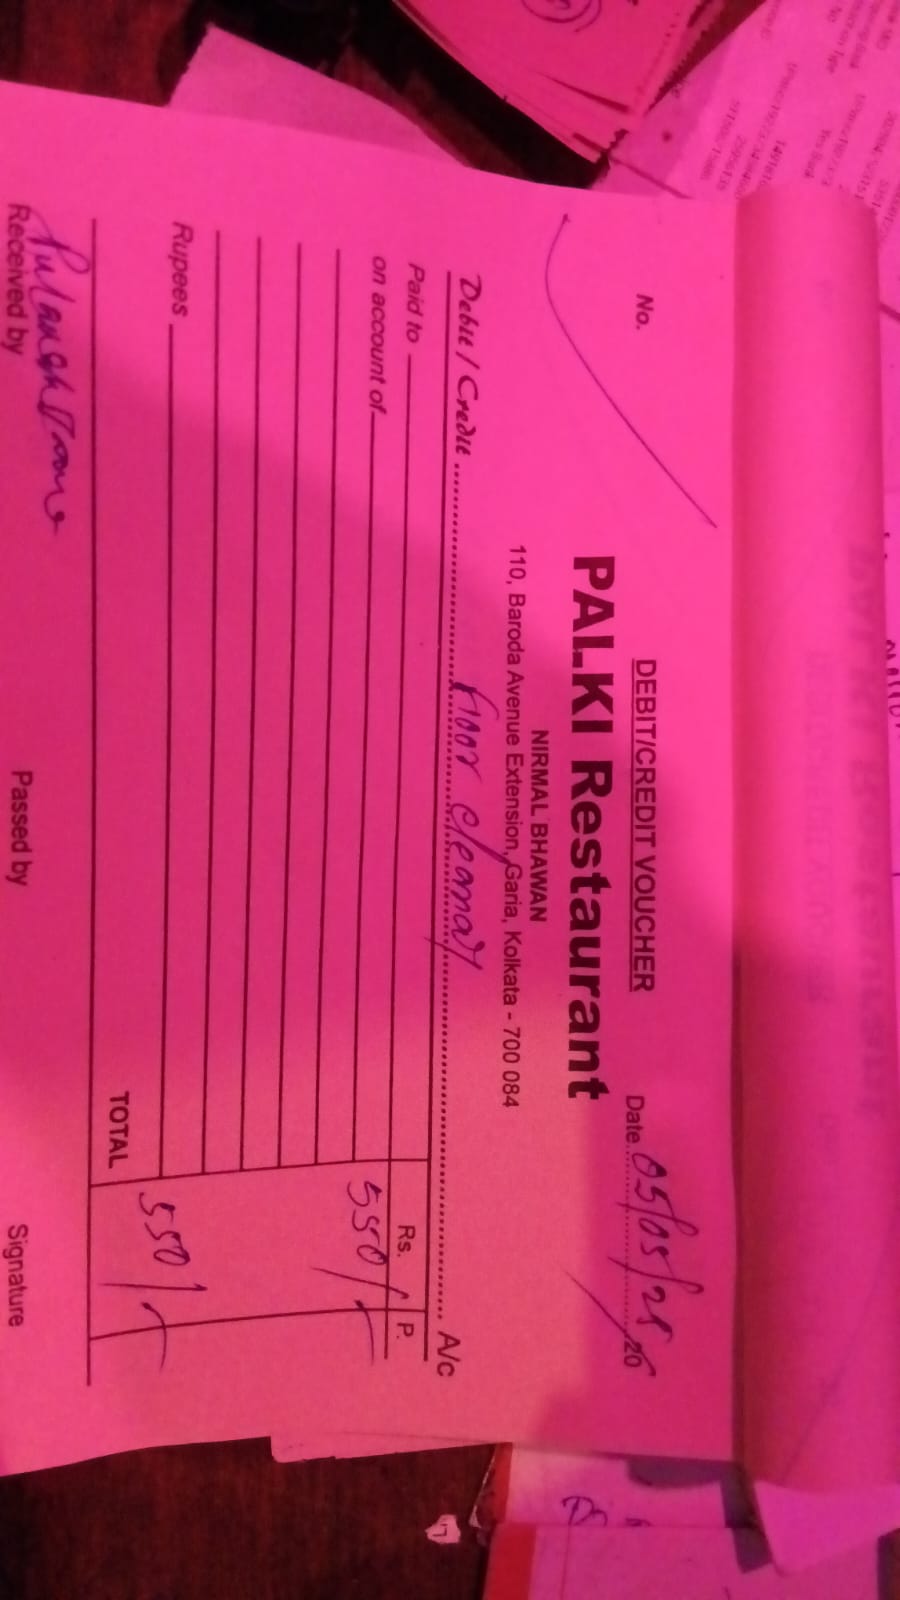 DEBIT/CREDIT VOUCHER
No.
Date 05/05/25 20
PALKI Restaurant
NIRMAL BHAWAN
110, Baroda Avenue Extension, Garia, Kolkata - 700 084
Debit / Credit Floor cleaner A/c
Paid to Rs. P.
on account of 550/-
Rupees
TOTAL 550/-
Received by Passed by Signature